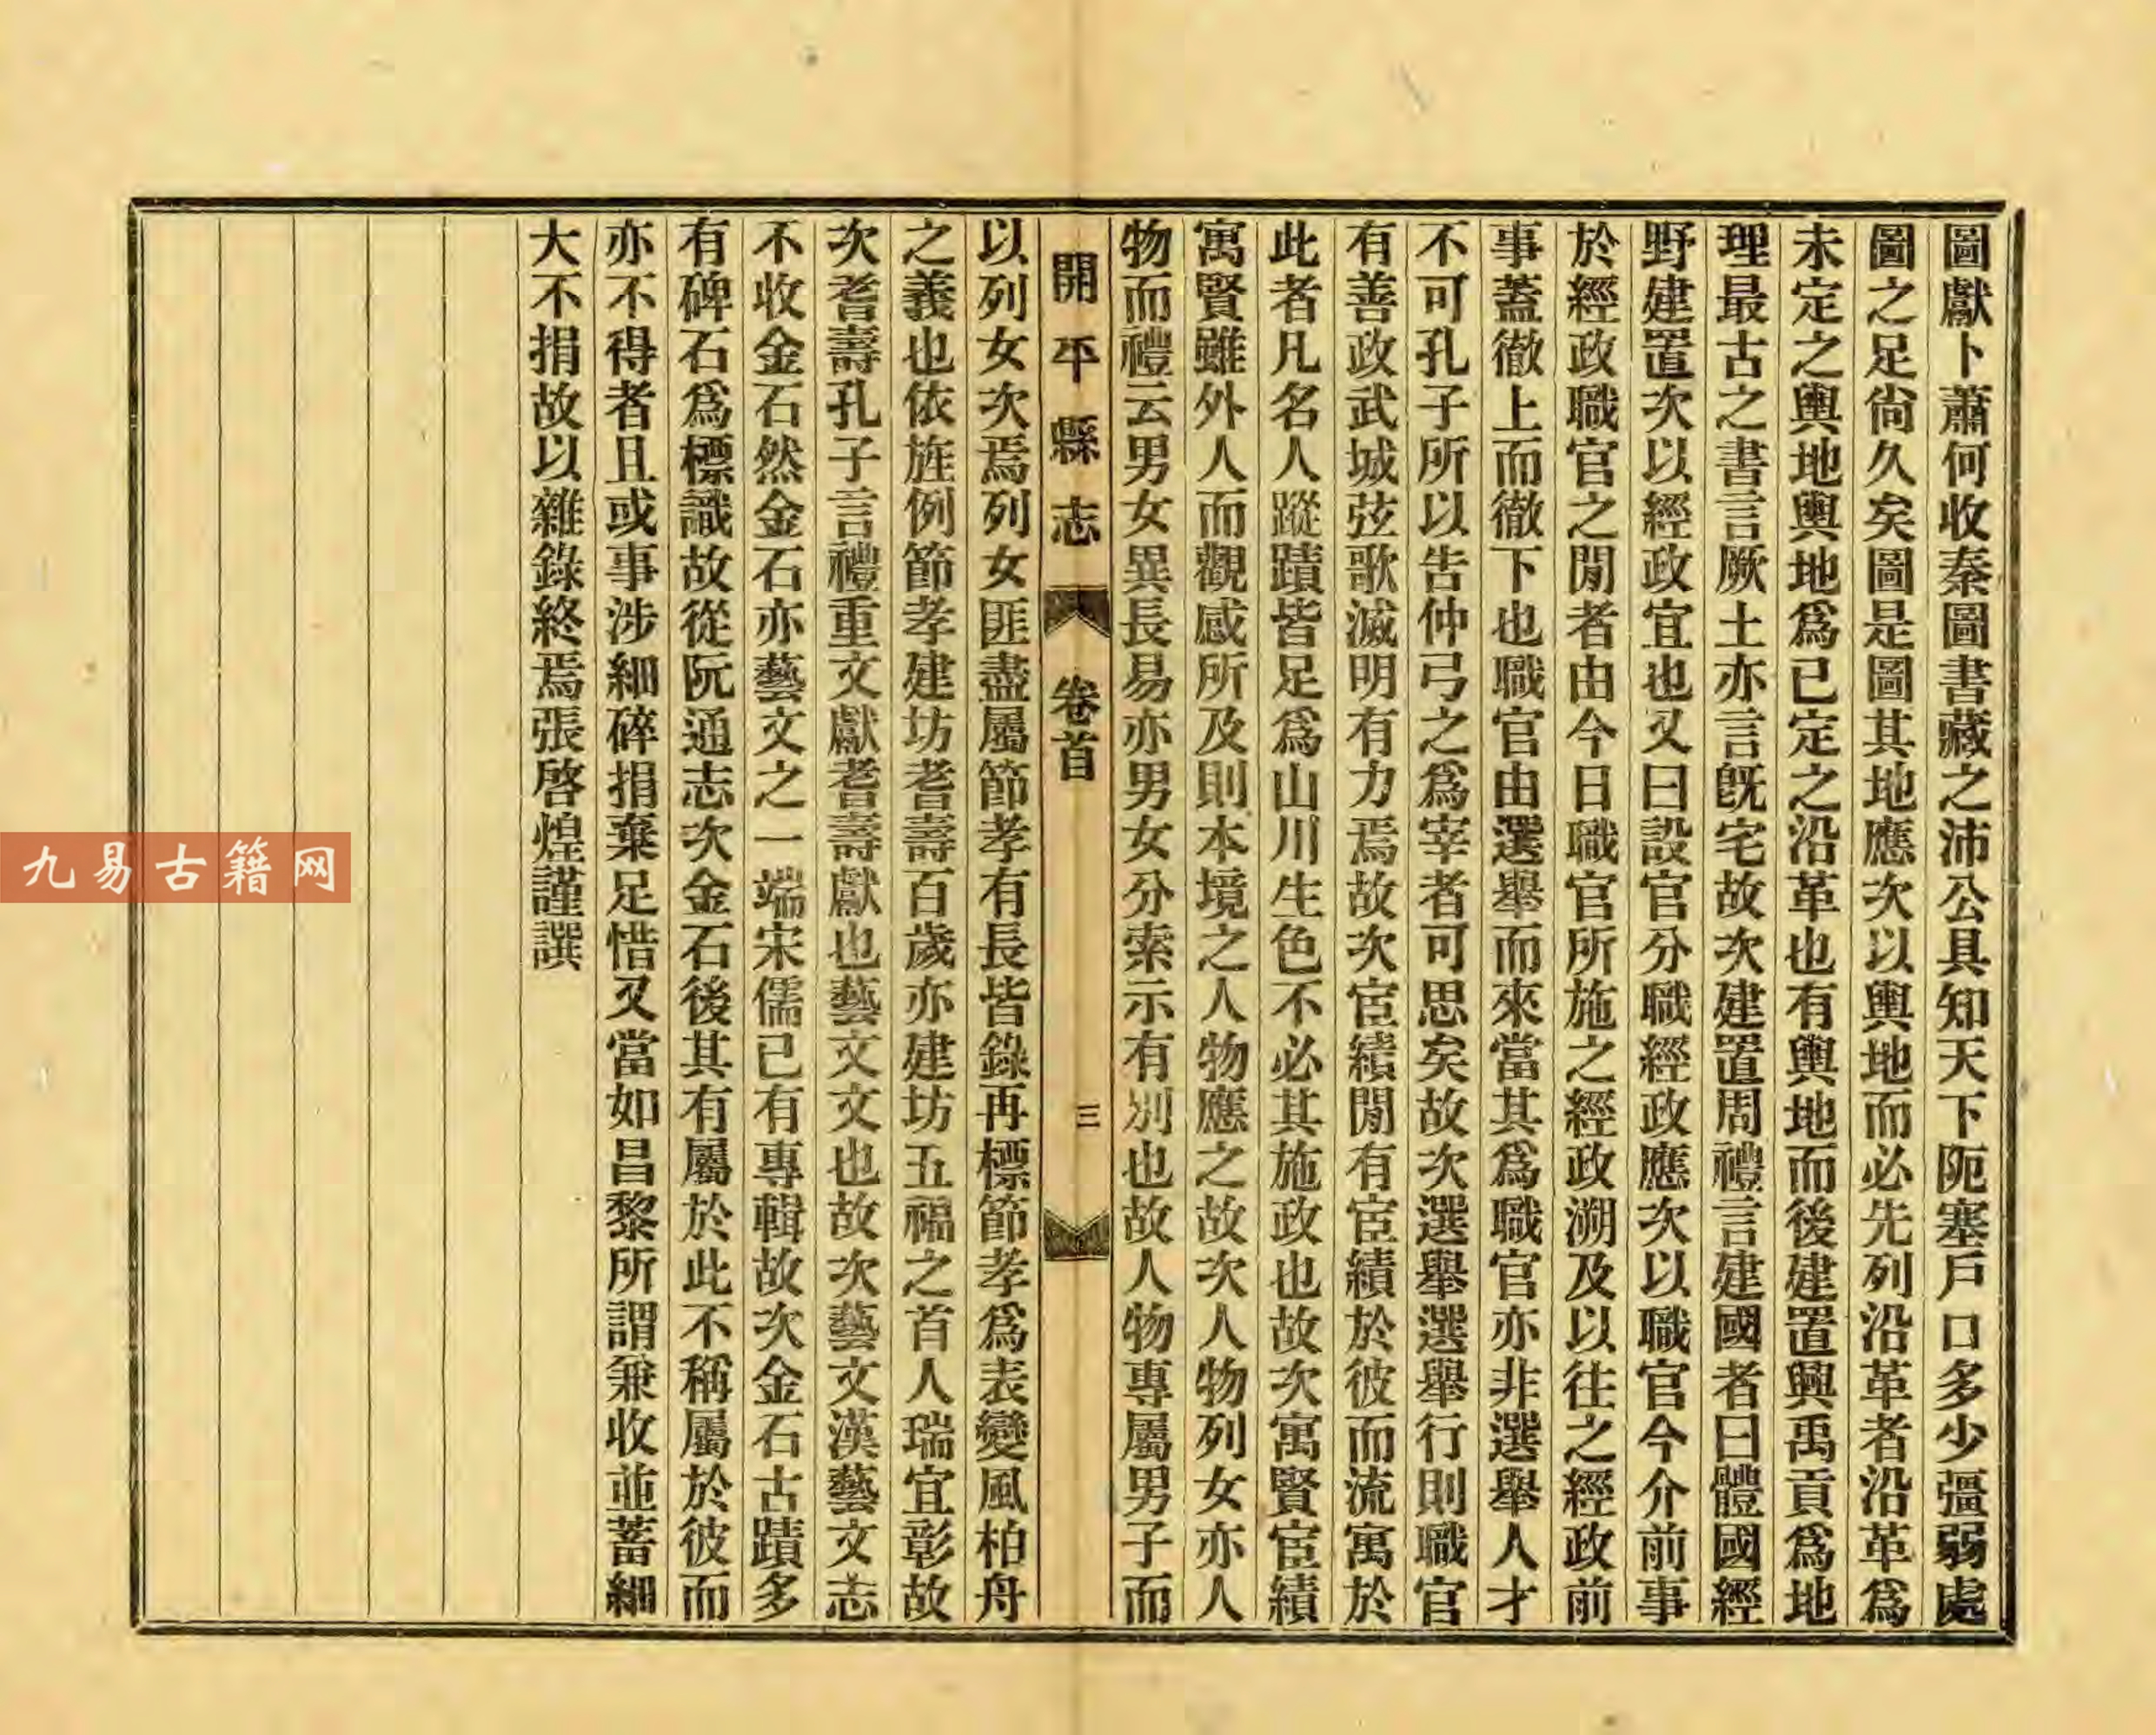 圖獻卜蕭何收秦圖書藏之沛公具知天下阨塞戶口多少彊弱處
圖之足尙久矣圖是圖其地應次以輿地而必先列沿革者沿革爲
未定之輿地輿地爲已定之沿革也有輿地而後建置興禹貢爲地
理最古之書言厥土亦言旣宅故次建置周禮言建國者曰體國經
野建置次以經政宜也又曰設官分職經政應次以職官今介前事
於經政職官之閒者由今日職官所施之經政溯及以往之經政前
事蓋徹上而徹下也職官由選舉而來當其爲職官亦非選舉人才
不可孔子所以告仲弓之爲宰者可思矣故次選舉選舉行則職官
有善政武城弦歌滅明有力焉故次宦績閒有宦績於彼而流寓於
此者凡名人蹤蹟皆足爲山川生色不必其施政也故次寓賢宦績
寓賢雖外人而觀感所及則本境之人物應之故次人物列女亦人
物而禮云男女異長易亦男女分索示有別也故人物專屬男子而
開平縣志 卷首 三
以列女次焉列女匪盡屬節孝有長皆錄再標節孝爲表變風柏舟
之義也依旌例節孝建坊耆壽百歲亦建坊五福之首人瑞宜彰故
次耆壽孔子言禮重文獻耆壽獻也藝文文也故次藝文漢藝文志
不收金石然金石亦藝文之一端宋儒已有專輯故次金石古蹟多
有碑石爲標識故從阮通志次金石後其有屬於此不稱屬於彼而
亦不得者且或事涉細碎捐棄足惜又當如昌黎所謂兼收並蓄細
大不捐故以雜錄終焉張啓煌謹譔
九易古籍网